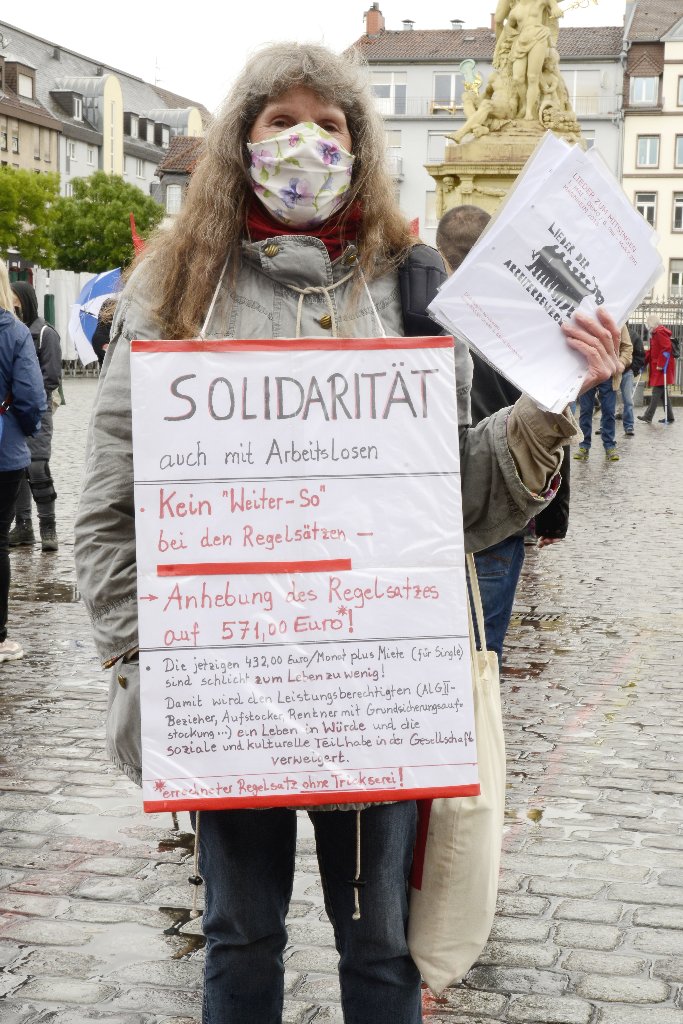 LIEDER ZUM MITSINGEN
LIEDER DER
ARBEITERBEWEGUNG
SOLIDARITÄT
auch mit Arbeitslosen
· Kein "Weiter-So"
bei den Regelsätzen –
→ Anhebung des Regelsatzes
auf 571,00 Euro*!
· Die jetzigen 432,00 Euro/Monat plus Miete (für Single)
sind schlicht zum Leben zu wenig!
Damit wird den Leistungsberechtigten (ALG II-
Bezieher, Aufstocker, Rentner mit Grundsicherungsauf-
stockung...) ein Leben in Würde und die
soziale und kulturelle Teilhabe in der Gesellschaft
verweigert.
*errechneter Regelsatz ohne Trickserei!